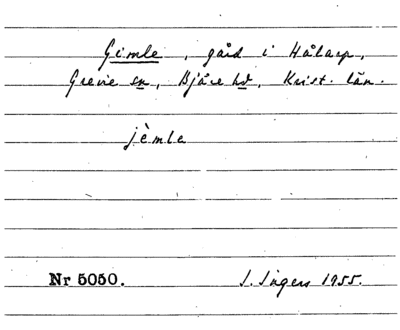 Gimle, gård i Hålarp,
Grevie sn, Bjäre hd, Krist. län.
jèmle
Nr 5050. S. Ingers 1955.